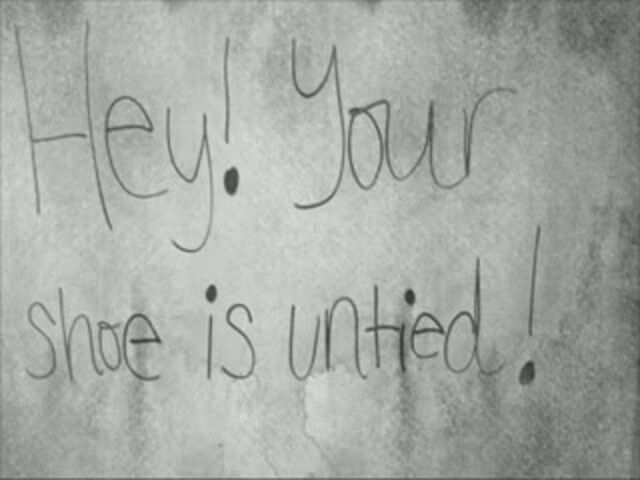 Hey! Your
shoe is untied!